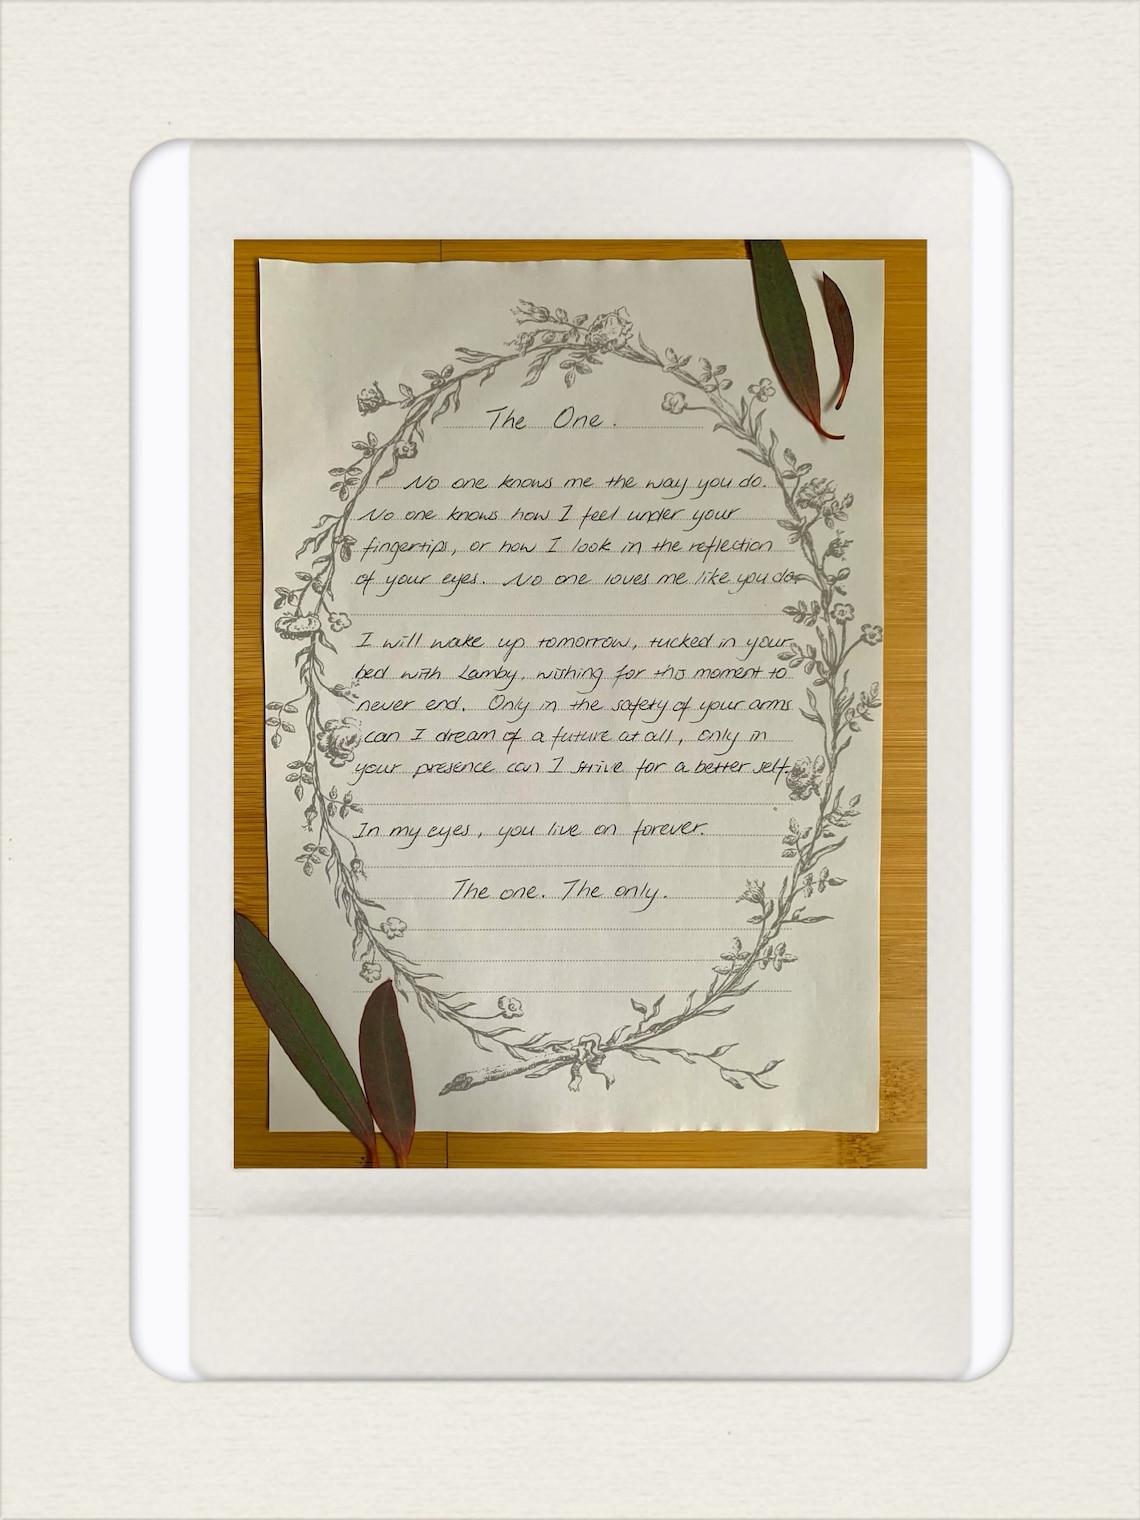 The One.
No one knows me the way you do.
No one knows how I feel under your
fingertips, or how I look in the reflection
of your eyes. No one loves me like you do.
I will wake up tomorrow, tucked in your
bed with Lamby, wishing for this moment to
never end. Only in the safety of your arms
can I dream of a future at all, only in
your presence can I strive for a better self.
In my eyes, you live on forever.
The one. The only.